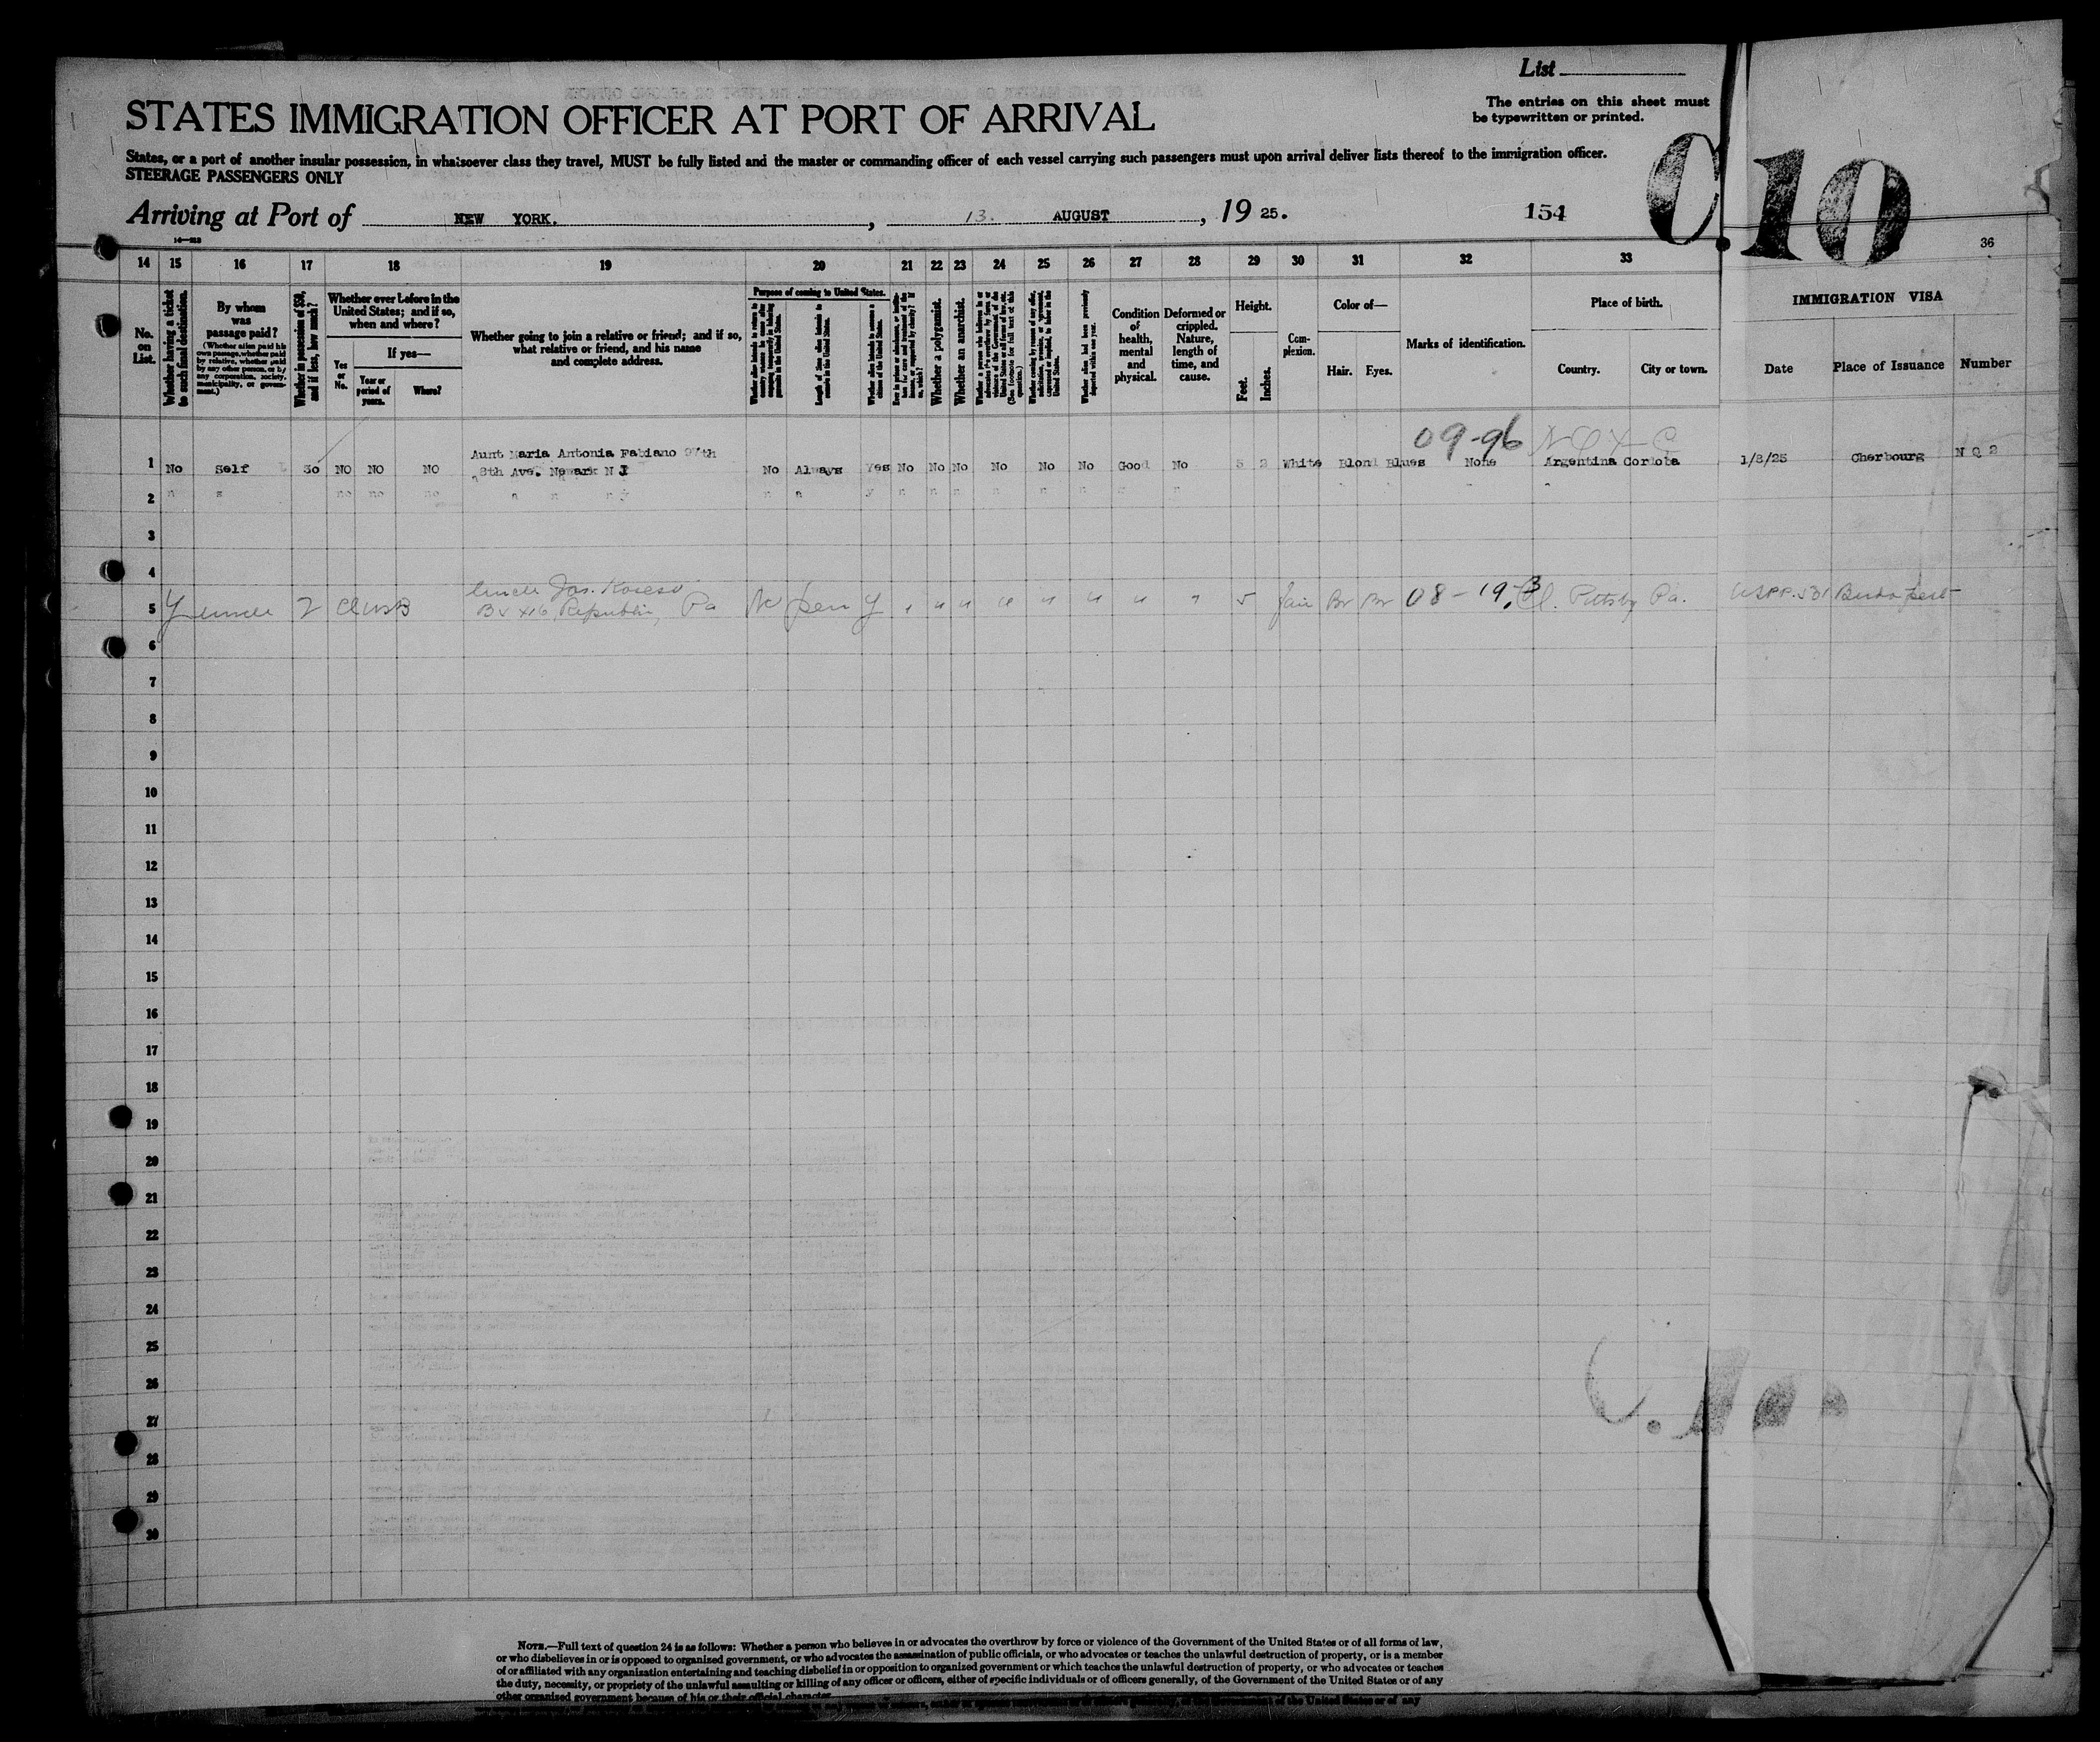 List
STATES IMMIGRATION OFFICER AT PORT OF ARRIVAL
The entries on this sheet must
be typewritten or printed.
States, or a port of another insular possession, in whatsoever class they travel, MUST be fully listed and the master or commanding officer of each vessel carrying such passengers must upon arrival deliver lists thereof to the immigration officer.
STEERAGE PASSENGERS ONLY
C.10
Arriving at Port of NEW YORK. , 13. AUGUST , 19 25.
154
36
14 15 16 17 18 19 20 21 22 23 24 25 26 27 28 29 30 31 32 33
No. on List.
Whether having a ticket to such final destination.
By whom was passage paid?
(Whether alien paid his own passage, whether paid by relative, whether paid by any other person, or by any corporation, society, municipality, or government.)
Whether in possession of $50, and if less, how much?
Whether ever before in the United States; and if so, when and where?
Yes or No.
If yes—
Year or period of years.
Where?
Whether going to join a relative or friend; and if so, what relative or friend, and his name and complete address.
Purpose of coming to United States.
Whether a polygamist.
Whether an anarchist.
Condition of health, mental and physical.
Deformed or crippled. Nature, length of time, and cause.
Height.
Feet.
Inches.
Complexion.
Color of—
Hair.
Eyes.
Marks of identification.
Place of birth.
Country.
City or town.
IMMIGRATION VISA
Date
Place of Issuance
Number
09-96
Aunt Maria Antonia Fabiano
1 No Self 30 NO NO NO 8th Ave. Newark N J No Always Yes No No No No No No Good No 5 2 White Blond Blues None Argentina Cordoba 1/8/25 Cherbourg N Q 2
2
3
4
Uncle Jos.
5 Y uncle 2 Republic, Pa 5 fair Br Br 08-19 Pa. Budapest
6
7
8
9
10
11
12
13
14
15
16
17
18
19
20
21
22
23
24
25
26
27
28
29
30
NOTE.—Full text of question 24 is as follows: Whether a person who believes in or advocates the overthrow by force or violence of the Government of the United States or of all forms of law,
or who disbelieves in or is opposed to organized government, or who advocates the assassination of public officials, or who advocates or teaches the unlawful destruction of property, or is a member
of or affiliated with any organization entertaining and teaching disbelief in or opposition to organized government or which teaches the unlawful destruction of property, or who advocates or teaches
the duty, necessity, or propriety of the unlawful assaulting or killing of any officer or officers, either of specific individuals or of officers generally, of the Government of the United States or of any
other organized government because of his or their official character.